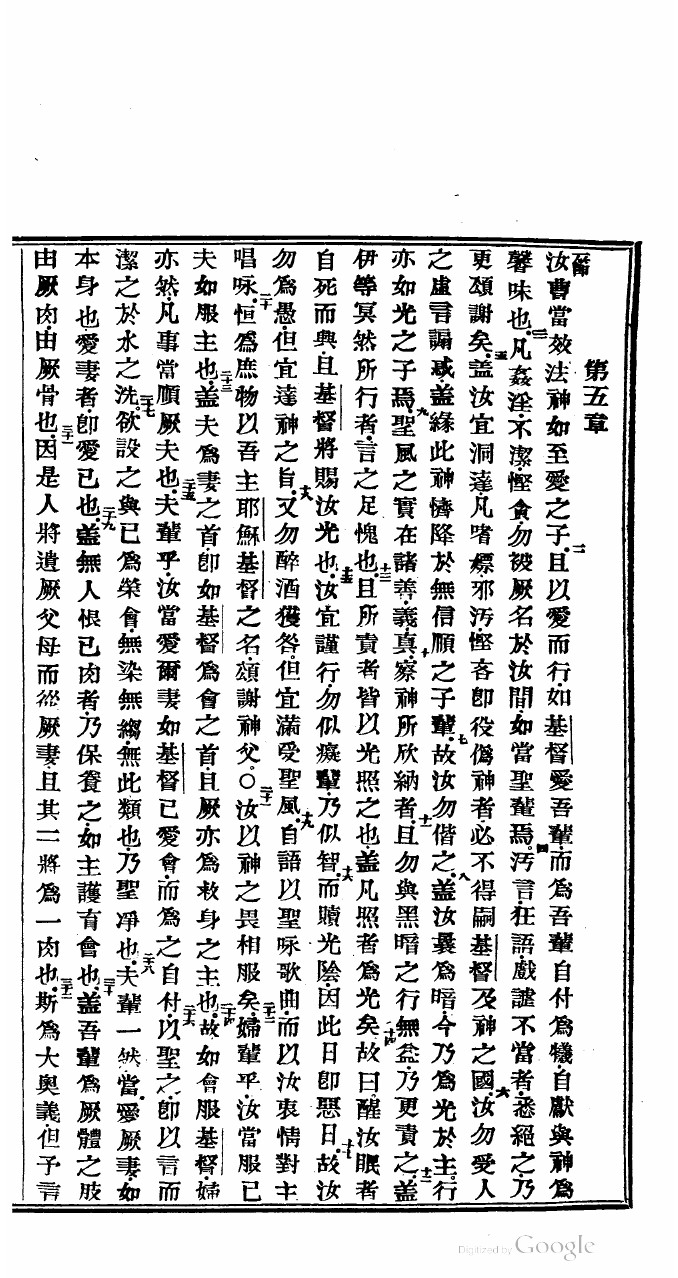 第五章
一節汝曹當效法神如至愛之子二且以愛而行如基督愛吾輩而爲吾輩自付爲犧自獻與神爲
馨味也三凡姦淫不潔慳貪勿被厥名於汝間如當聖輩焉四汚言狂語戲謔不當者悉絕之乃
更頌謝矣五蓋汝宜洞達凡嗜嫖邪汚慳吝卽役僞神者必不得嗣基督及神之國六汝勿受人
之虛言諞惑蓋緣此神懠降於無信順之子輩七故汝勿偕之八蓋汝曩爲暗今乃爲光於主行
亦如光之子焉九聖風之實在諸善義眞十察神所欣納者十一且勿與黑暗之行無益乃更責之十二蓋
伊等冥然所行者言之足愧也十三且所責者皆以光照之也蓋凡照者爲光矣十四故曰醒汝眠者
自死而興且基督將賜汝光也十五汝宜謹行勿似癡輩乃似智十六而贖光陰因此日卽惡日十七故汝
勿爲愚但宜達神之旨十八又勿醉酒獲咎但宜滿受聖風十九自語以聖咏歌曲而以汝衷情對主
唱咏二十恒爲庶物以吾主耶穌基督之名頌謝神父〇二十一汝以神之畏相服矣二十二婦輩乎汝當服己
夫如服主也二十三蓋夫爲妻之首卽如基督爲會之首且厥亦爲救身之主也二十四故如會服基督婦
亦然凡事當順厥夫也二十五夫輩乎汝當愛爾妻如基督已愛會而爲之自付二十六以聖之卽以言而
潔之於水之洗二十七欲設之與己爲榮會無染無縐無此類也乃聖凈也二十八夫輩一然當愛厥妻如
本身也愛妻者卽愛己也二十九蓋無人恨己肉者乃保養之如主護育會也三十蓋吾輩爲厥體之肢
由厥肉由厥骨也三十一因是人將遺厥父母而從厥妻且其二將爲一肉也三十二斯爲大奧義但予言
Digitized by Google